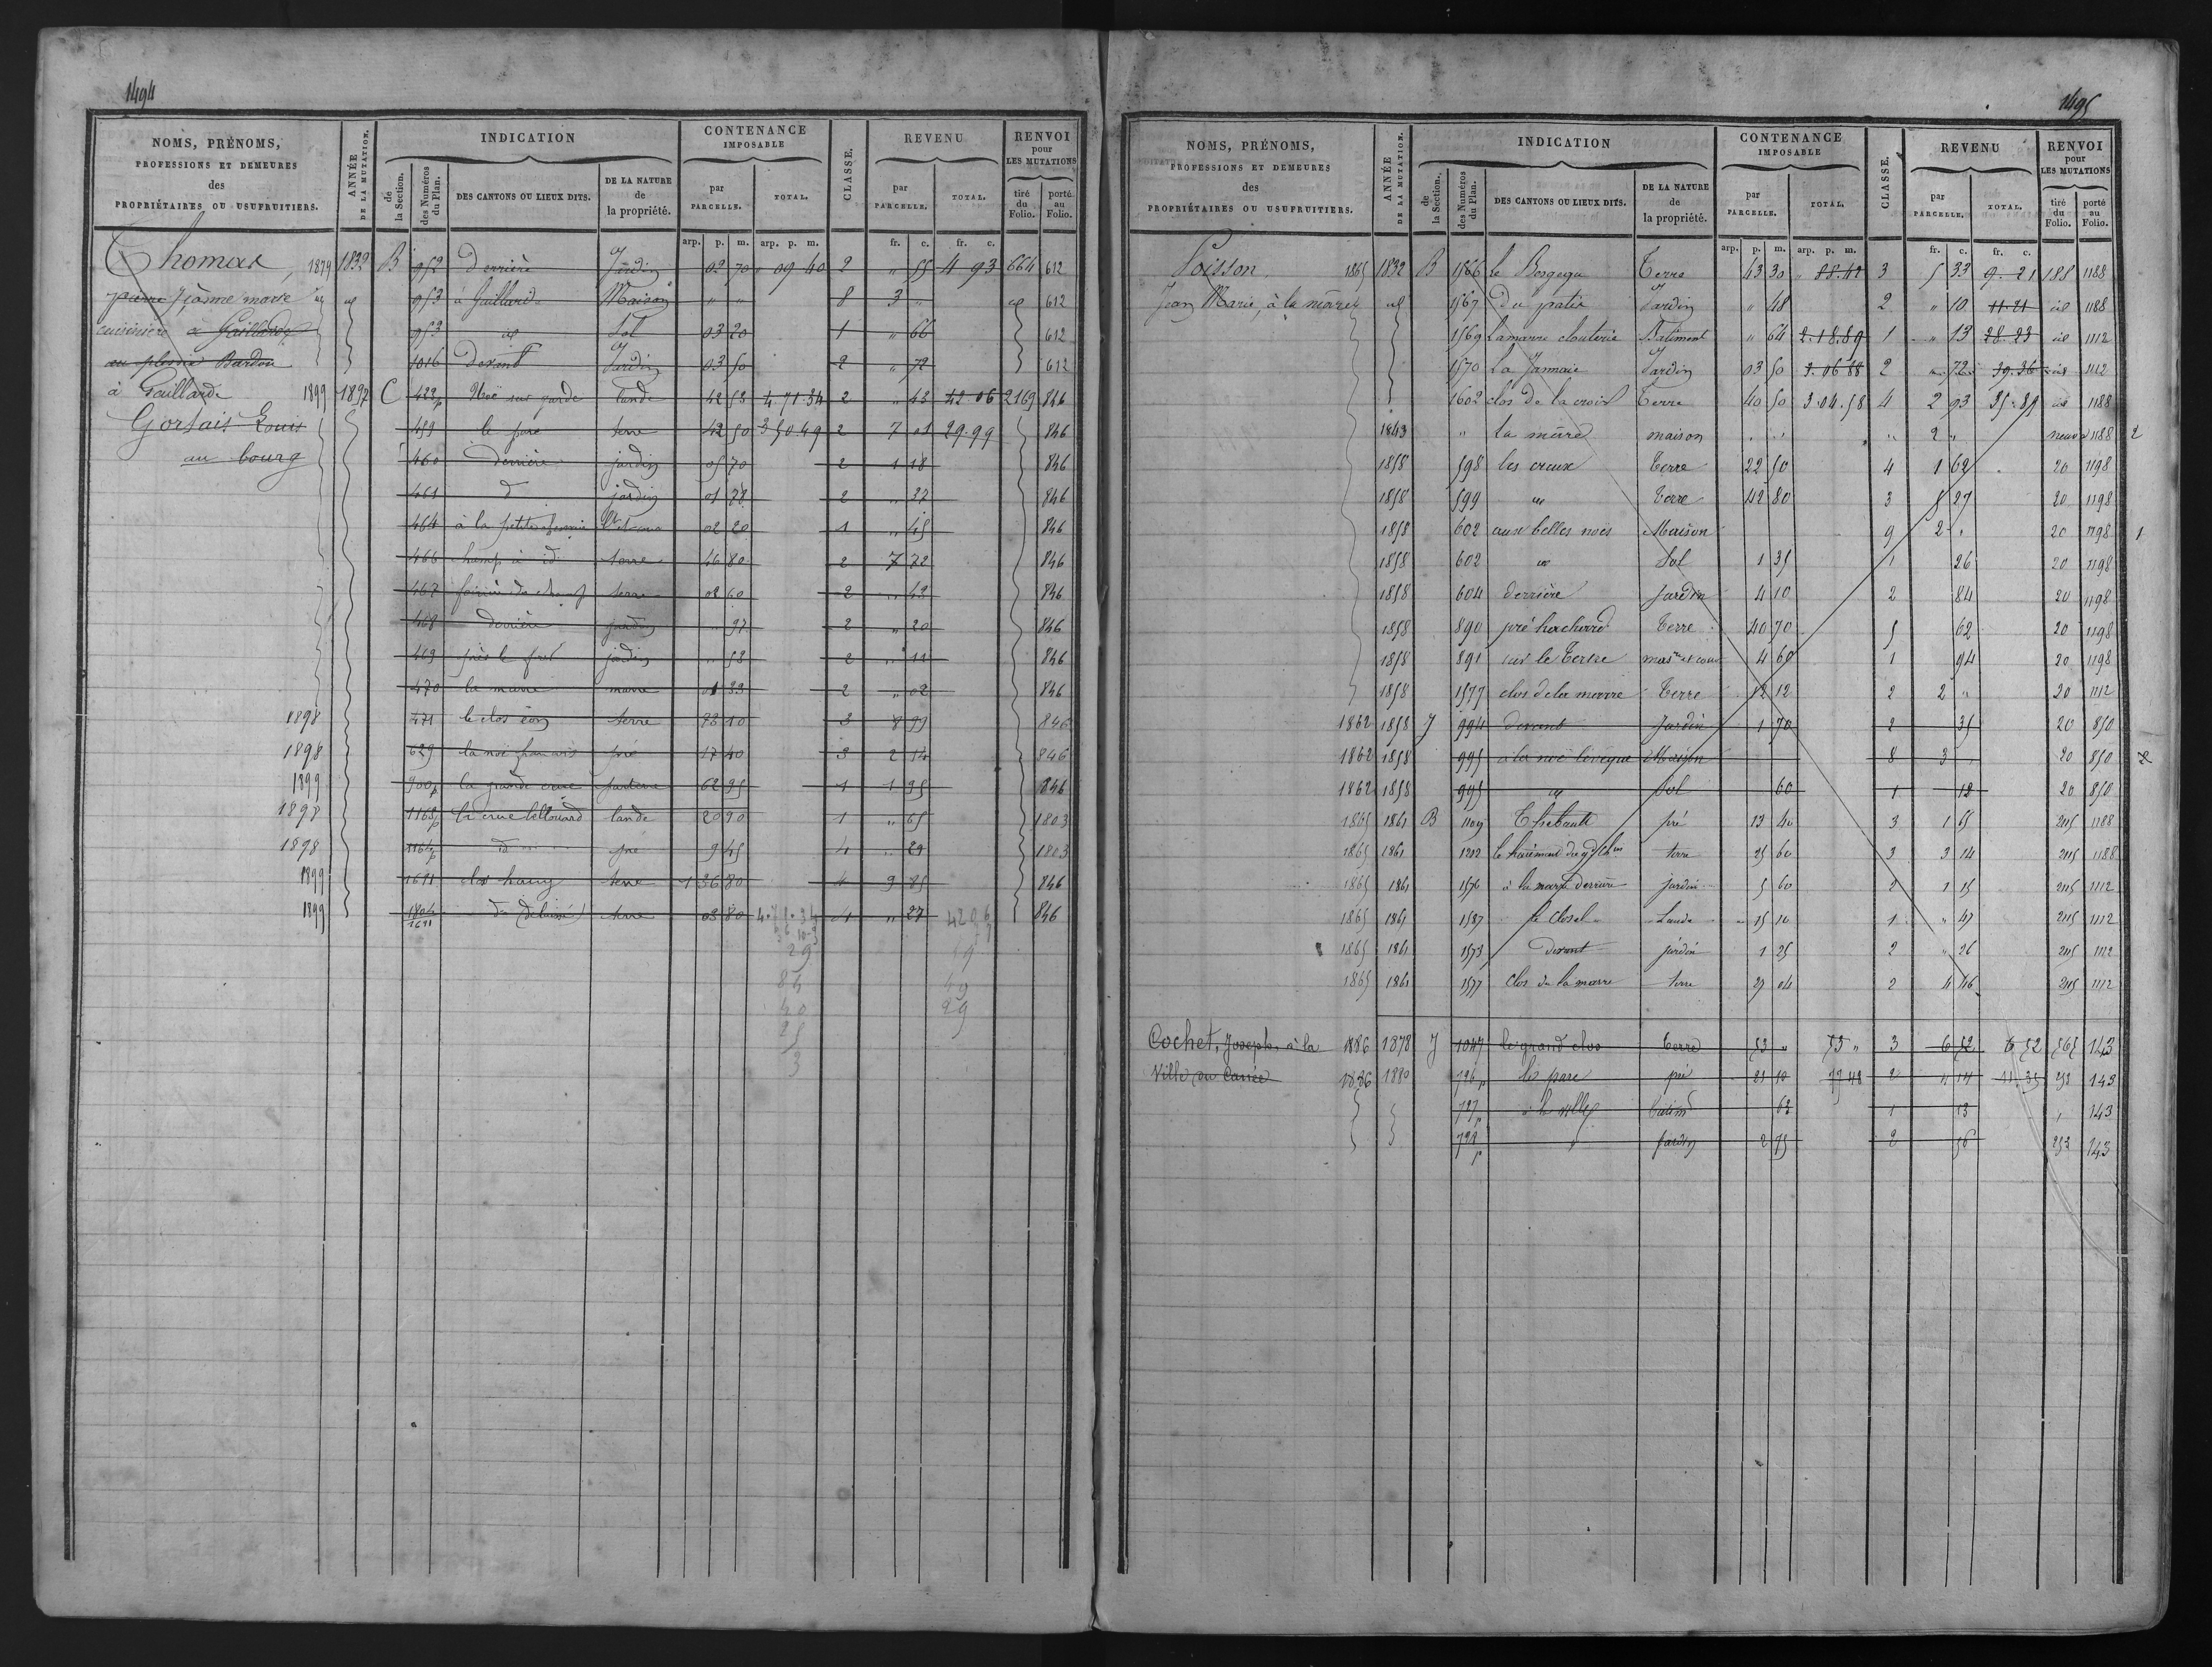 1494
NOMS, PRÉNOMS, PROFESSIONS ET DEMEURES des PROPRIÉTAIRES OU USUFRUITIERS.
ANNÉE DE LA MUTATION.
INDICATION
de la Section.
des Numéros du Plan.
DES CANTONS OU LIEUX DITS.
DE LA NATURE de la propriété.
CONTENANCE IMPOSABLE
par PARCELLE.
TOTAL.
CLASSE.
REVENU
par PARCELLE.
TOTAL.
RENVOI pour LES MUTATIONS
tiré du Folio.
porté au Folio.
arp. p. m. arp. p. m. fr. c. fr. c.
Thomas, 1879 1832 B 952 Derrière Jardin 02 70 " 09 40 2 " 55 4 93 664 612
pierre Jeanne marie id 953 à Gaillarde Maison " " 8 3 " id 612
cuisinière à Gaillarde 953 id Sol 03 20 1 " 66 612
Bardou 1016 Devant Jardin 03 50 2 " 72 612
à Gaillarde 1899 1897 C 422p Noë sur garde lande 42 53 4 71 34 2 " 43 42 06 2169 846
Gortais Louis 459 le paré terre 42 50 3 50 49 2 7 01 29.99 846
au bourg 460 derrière jardin 05 70 2 1 18 846
461 d° jardin 01 78 2 " 37 846
464 à la petite 02 20 1 " 45 846
466 champ à id terre 46 80 2 7 72 846
467 terre 02 60 2 " 43 846
468 derrière jardin " 97 2 " 20 846
469 près le four jardin " 53 2 " 11 846
470 la mare mare 01 33 2 " 02 846
1898 471 le clos terre 83 10 3 8 99 846
1898 629 la noë pré 17 40 3 2 14 846
1899 900p la grande crue 62 95 1 1 95 846
1898 1163p la crue bellouard lande 20 90 1 " 65 1803
1898 1164p d° pré 9 45 4 " 29 1803
1899 1611 clos hany terre 1 36 80 4 9 85 846
1899 1804/1611 d° (délaissé) terre 03 80 4.71.34 1 " 27 4206 846
1495
NOMS, PRÉNOMS, PROFESSIONS ET DEMEURES des PROPRIÉTAIRES OU USUFRUITIERS.
ANNÉE DE LA MUTATION.
INDICATION
de la Section.
des Numéros du Plan.
DES CANTONS OU LIEUX DITS.
DE LA NATURE de la propriété.
CONTENANCE IMPOSABLE
par PARCELLE.
TOTAL.
CLASSE.
REVENU
par PARCELLE.
TOTAL.
RENVOI pour LES MUTATIONS
tiré du Folio.
porté au Folio.
arp. p. m. arp. p. m. fr. c. fr. c.
Poisson 1865 1832 B 1566 le Bergegu Terre 43 30 " 88.42 3 5 33 9.21 188 1188
Jean Marie, à la marre id 1567 du patis Jardin " 48 2 " 10 11.21 id 1188
1569 Lamarre clouterie Batiment " 64 2.18.89 1 " 13 28.23 id 1112
1570 La Jannaie Jardin 03 50 3.06 88 2 " 72 39.36 id 1112
1602 clos de la croix Terre 40 50 3.04.58 4 2 93 35.89 id 1188
1843 " la mare maison " " " 2 " neuve 1188 2
1858 598 les creux Terre 22 50 4 1 62 20 1198
1858 599 id Terre 42 80 3 5 27 20 1198
1858 602 aux belles noës Maison 9 2 " 20 1198 1
1858 602 id Sol 1 35 1 26 20 1198
1858 604 derrière Jardin 4 10 2 84 20 1198
1858 890 pré hacherd Terre 40 70 5 62 20 1198
1858 891 sur le Tertre mas.re et cour 4 60 1 94 20 1198
1858 1577 clos de la marre Terre 12 12 2 2 " 20 1112
1862 1858 J 994 devant Jardin 1 70 2 35 20 850
1862 1858 995 à la noë lévêque Maison 8 3 " 20 850
1862 1858 995 id Sol 60 1 12 20 850
1865 1861 B 1109 Thébault pré 13 40 3 1 65 2115 1188
1865 1861 1202 terre 25 60 3 3 14 2115 1188
1865 1861 1576 à la marre derrière jardin 5 60 2 1 15 2115 1112
1865 1861 1587 le closel Lande 15 10 1 " 47 2115 1112
1865 1861 1573 Devant jardin 1 25 2 " 26 2115 1112
1865 1861 1577 clos de la marre terre 27 04 2 4 46 2115 1112
Cochet, Joseph, à la 1886 1878 J 1047 le grand clos Terre 53 " 53 " 3 6 52 6 52 565 143
Ville du Carrée 1886 1880 726p les parc pré 21 10 77 48 2 4 14 11.35 253 143
727p à la ville batim.t 63 1 13 " 143
728p " Jardin 2 75 2 56 253 143